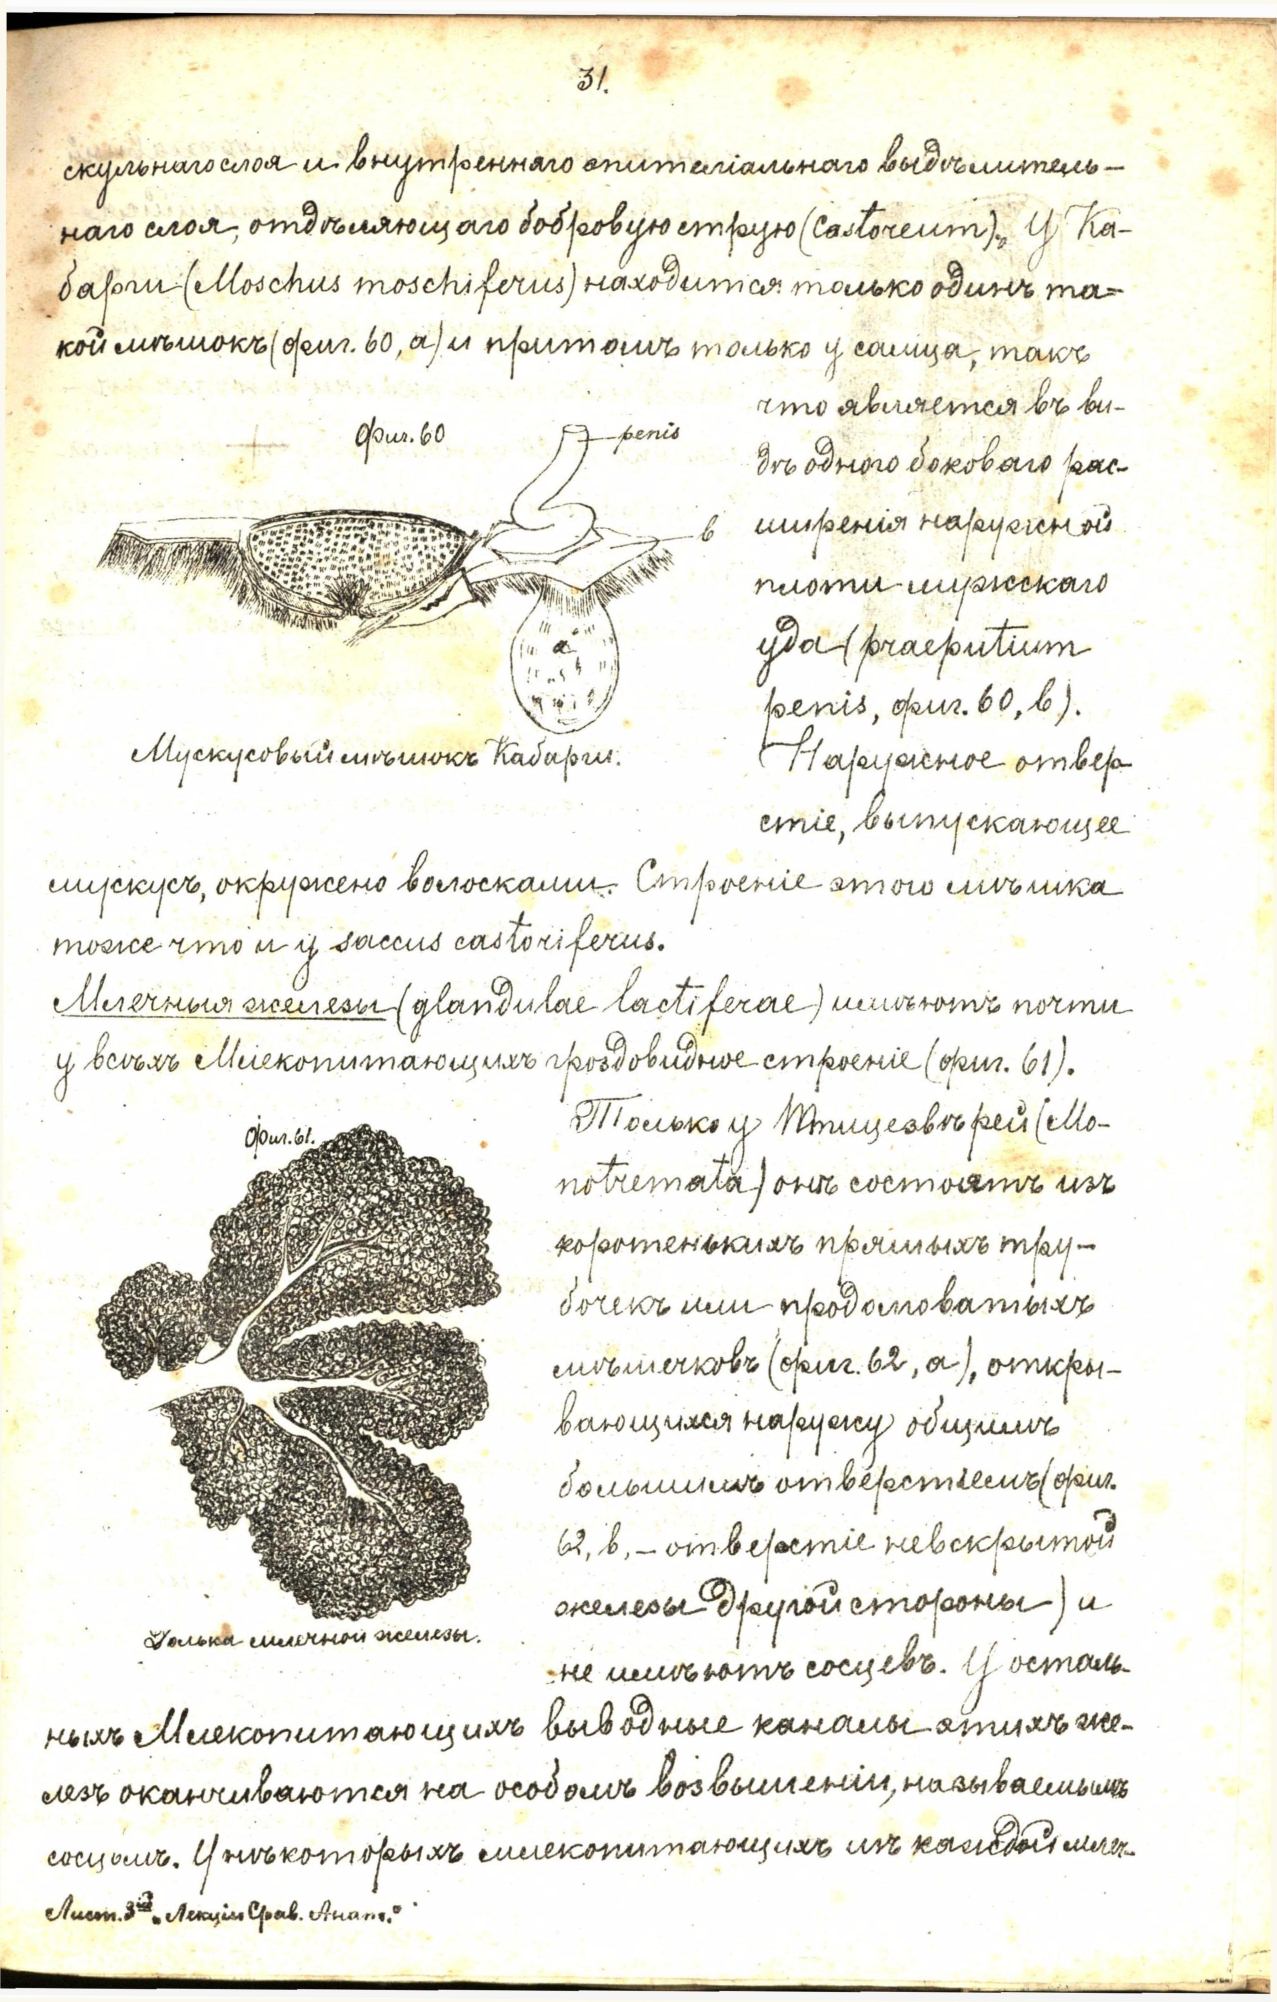 31.
скульнаго слоя и внутренняго эпителіальнаго выдѣлитель-
наго слоя, отдѣляющаго бобровую струю (Castoreum). У Ка-
барги (Moschus moschiferus) находится только одинъ та-
кой мѣшокъ (фиг. 60, a) и притомъ только у самца, такъ
что является въ ви-
дѣ одного боковаго рас-
ширенія наружной
плоти мужскаго
уда (praeputium
penis, фиг. 60, b).
Наружное отвер
стіе, выпускающее
фиг. 60
penis
b
a
Мускусовый мѣшокъ Кабарги.
мускусъ, окружено волосками. Строеніе этого мѣшка
тоже что и у saccus castoriferus.
Млечныя железы (glandulae lactiferae) имѣютъ почти
у всѣхъ Млекопитающихъ гроздовидное строеніе (фиг. 61).
Фиг. 61.
Долька млечной железы.
Только у Птицезвѣрей (Mo-
notremata) онѣ состоятъ изъ
коротенькихъ прямыхъ тру-
бочекъ или продолговатыхъ
мѣшечковъ (фиг. 62, a), откры-
вающихся наружу общимъ
большимъ отверстіемъ (фиг.
62, b, – отверстіе невскрытой
железы другой стороны) и
не имѣютъ сосцевъ. У осталь-
ныхъ Млекопитающихъ выводные каналы этихъ же-
лезъ оканчиваются на особомъ возвышеніи, называемымъ
сосцомъ. У нѣкоторыхъ млекопитающихъ изъ каждой млеч-
Лист. 3й „Лекціи Срав. Анат."